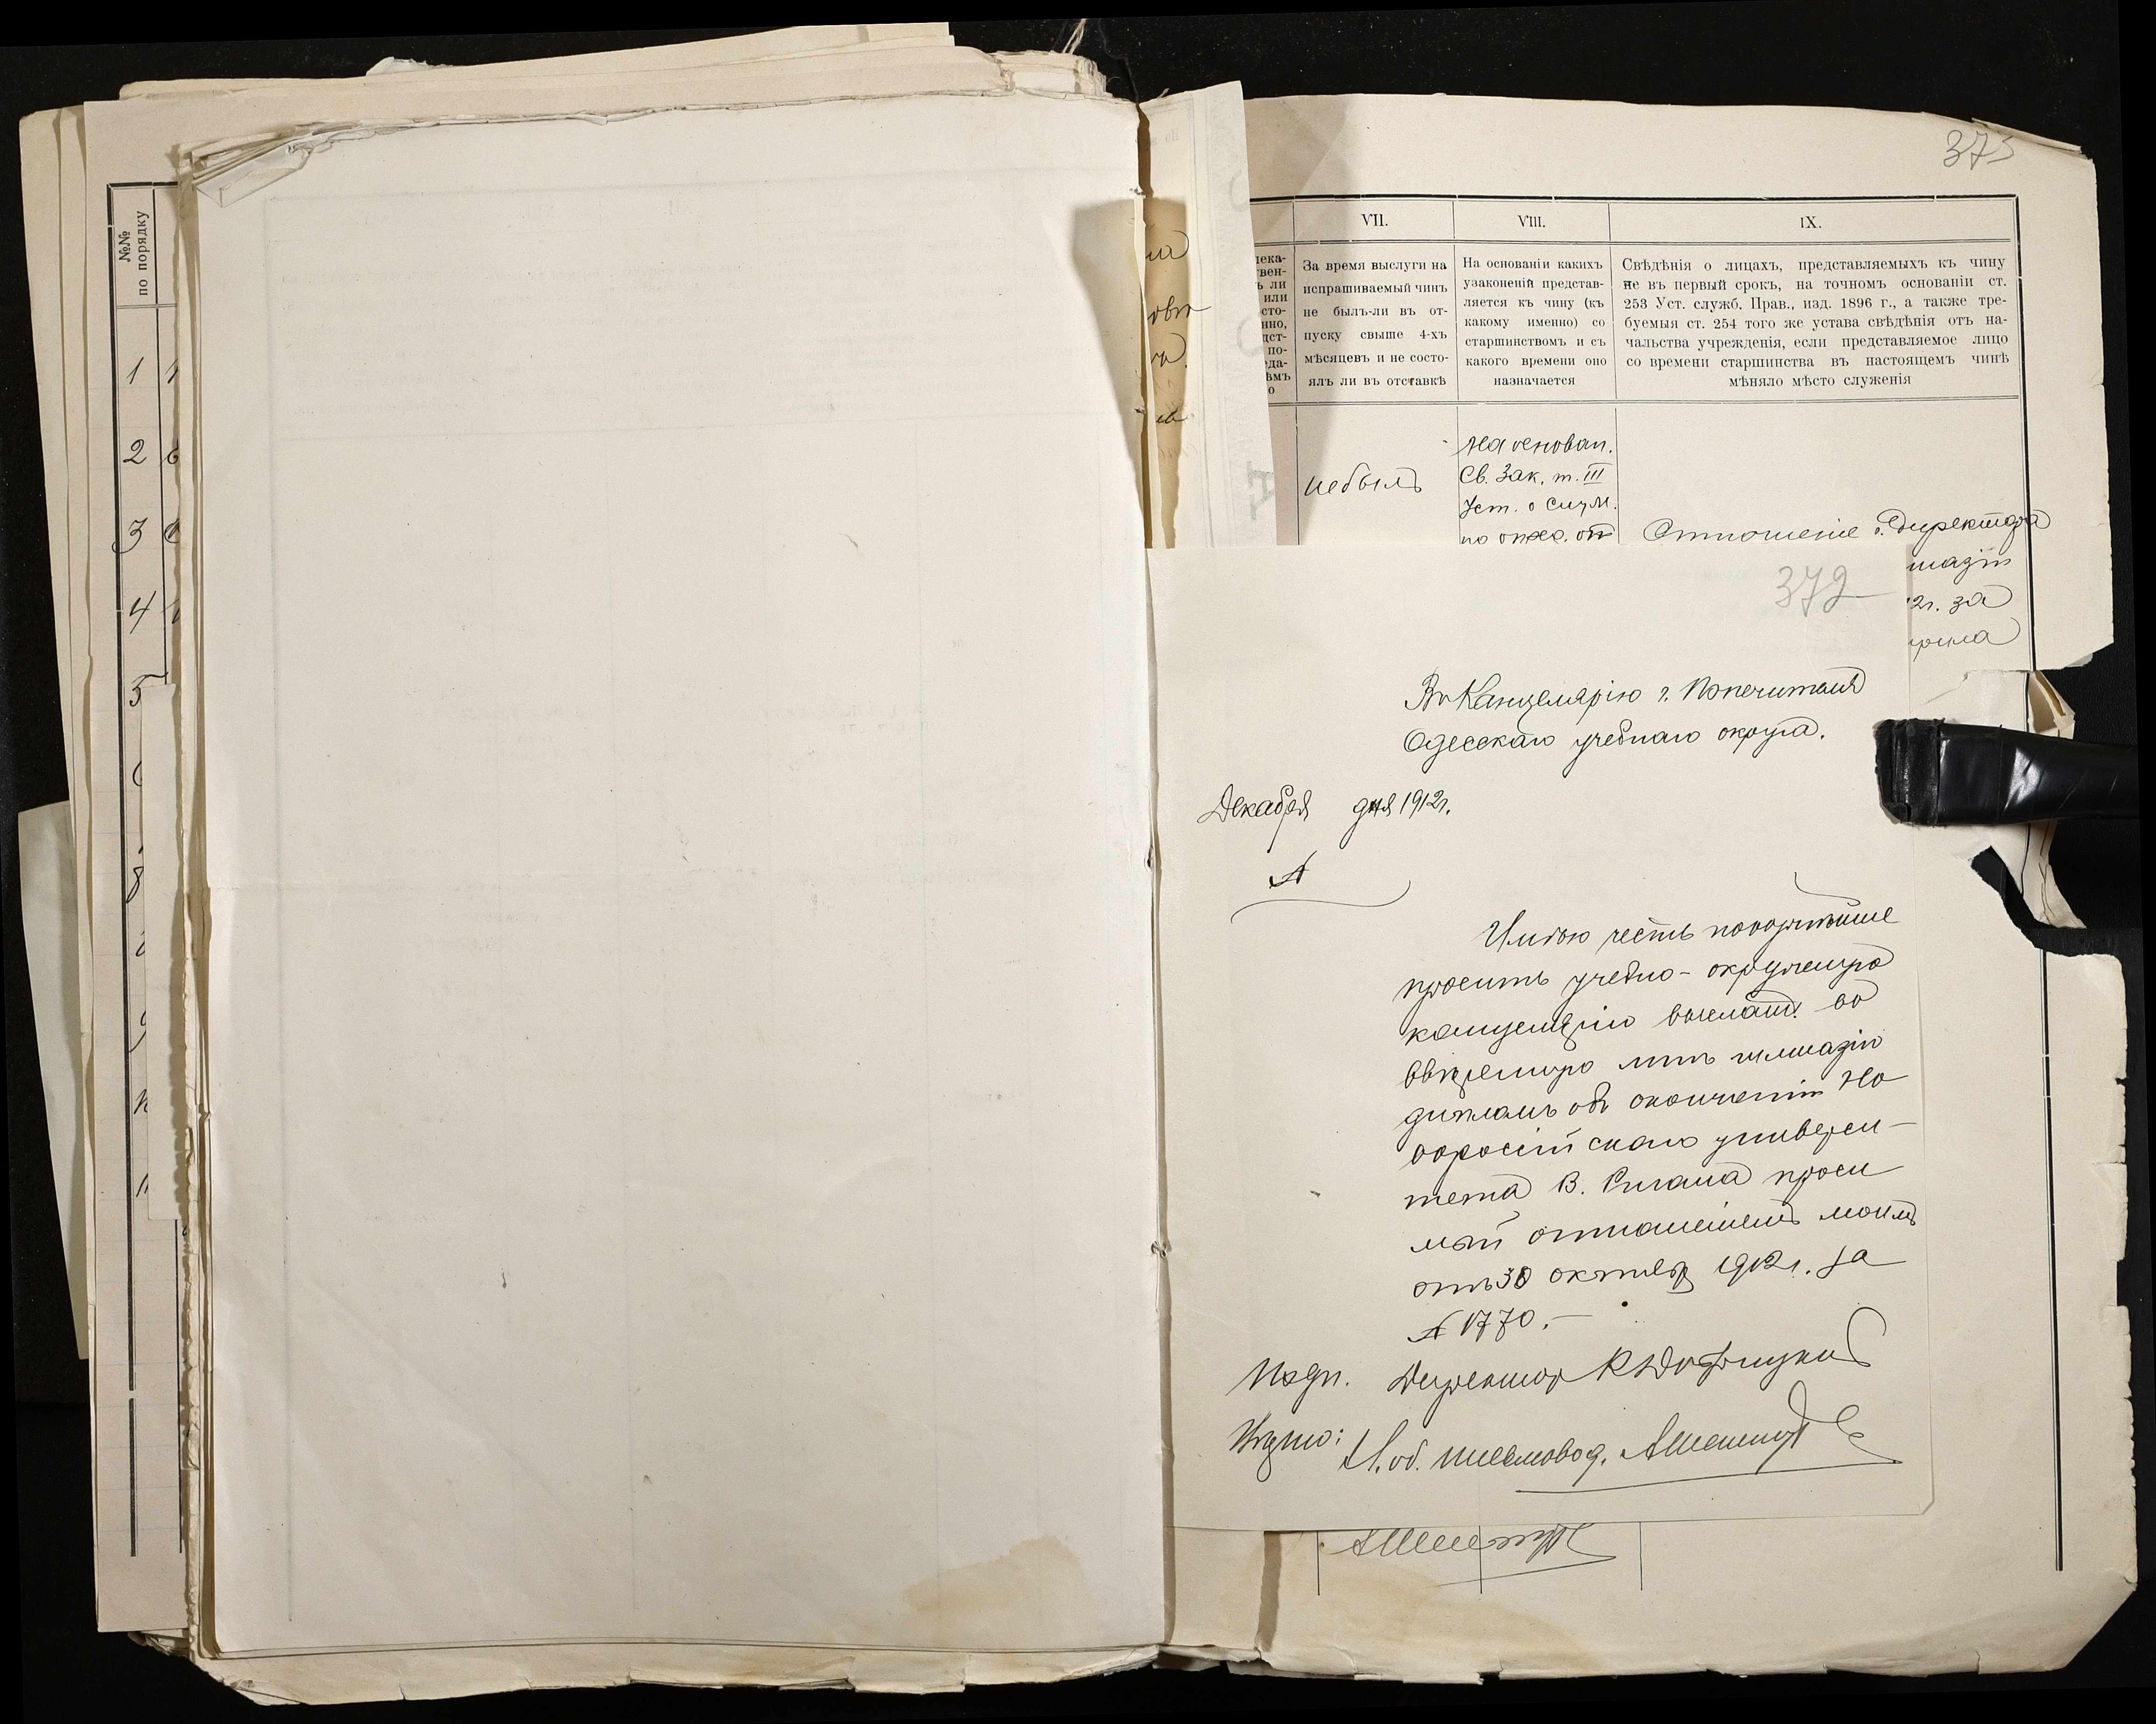 №№
по порядку
1
2
3
4
5
375
VII.
VIII.
IX.
За время выслуги на
испрашиваемый чинъ
не былъ-ли въ от-
пуску свыше 4-хъ
мѣсяцевъ и не состо-
ялъ ли въ отставкѣ
На основаніи какихъ
узаконеній представ-
ляется къ чину (къ
какому именно) со
старшинствомъ и съ
какого времени оно
назначается
Свѣдѣнія о лицахъ, представляемыхъ къ чину
не въ первый срокъ, на точномъ основаніи ст.
253 Уст. служб. Прав., изд. 1896 г., а также тре-
буемыя ст. 254 того же устава свѣдѣнія отъ на-
чальства учрежденія, если представляемое лицо
со времени старшинства въ настоящемъ чинѣ
мѣняло мѣсто служенія
не былъ
На основан.
Св. Зак. т. III
Уст. о Служ.
по
Отношеніе г. Директора
2г. за
372
Въ Канцелярію г. Попечителя
Одесскаго учебнаго округа.
Декабря дня 1912г.
№
Имѣю честь покорнѣйше
просить учебно-окружную
канцелярію выслать во
ввѣренную мнѣ гимназію
дипломъ объ окончаніи Но
вороссійскаго универси-
тета В. просп
отношеніемъ моимъ
отъ 30 октября 1912г. за
№ 1770.—
Подп. Директор
Вѣрно: И. об. письмовод.